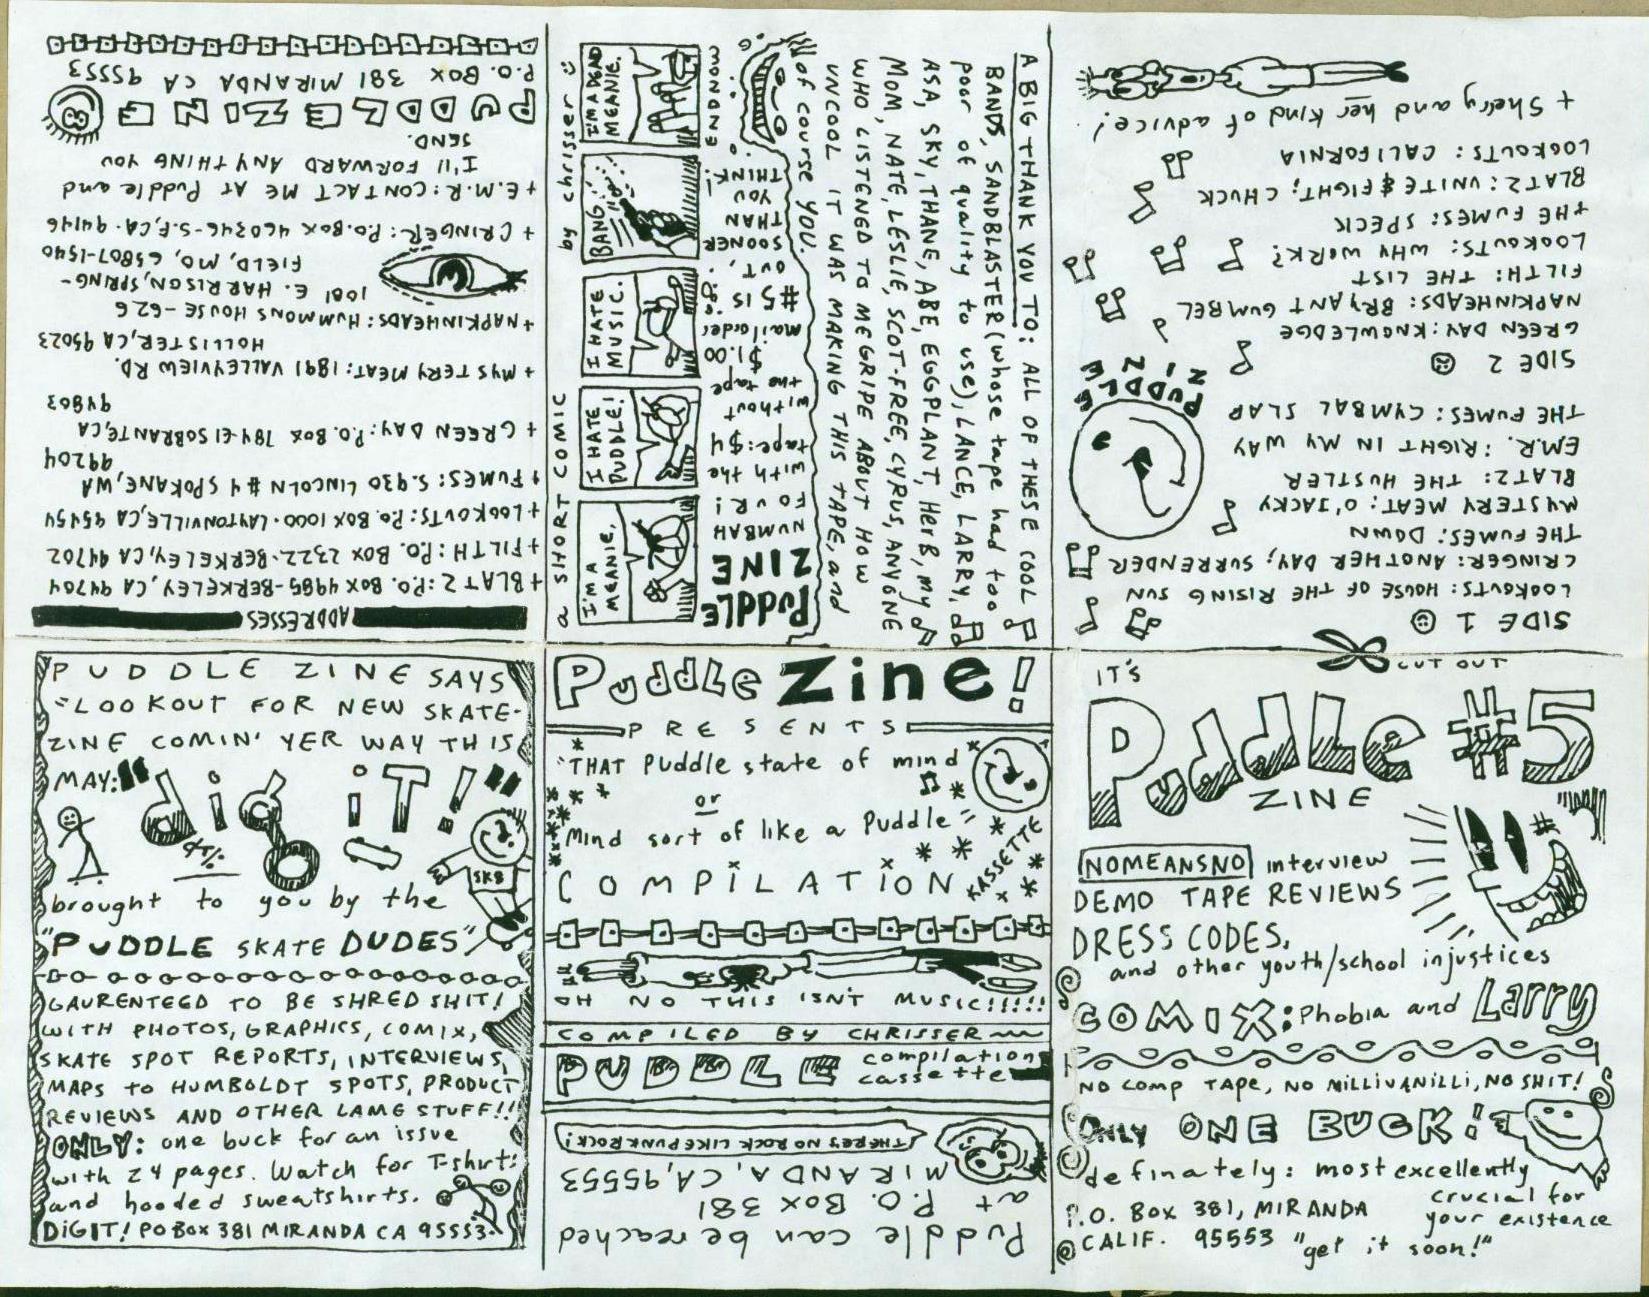 ADDRESSES
+BLATZ: P.O. BOX 4985-BERKELEY, CA 94704
+FILTH: P.O. BOX 2322-BERKELEY, CA 94702
+LOOKOUTS: P.O. BOX 1000-LAYTONVILLE, CA 95454
+FUMES: S.930 LINCOLN #4 SPOKANE, WA
99204
+ GREEN DAY: P.O. BOX 784-ELSOBRANTE, CA
94803
+ MYSTERY MEAT: 1891 VALLEYVIEW RD.
HOLLISTER, CA 95023
+NAPKINHEADS: HUMMONS HOUSE-626
1001 E. HARRISON, SPRING-
FIELD, MO, 65807-1540
+ CRINGER: P.O. BOX 460346-S.F, CA. 94146
+E.M.R: CONTACT ME AT Puddle and
I'll FORWARD ANYTHING YOU
SEND.
PUDDLEZINE
P.O. BOX 381 MIRANDA CA 95553
a SHORT COMIC
by chrisser
I'M A MEANIE.
I HATE PUDDLE!
I HATE MUSIC.
BANG
I'M A DEAD MEANIE.
PUDDLE
ZINE
NUMBAH
FOUR!
with the
tape: $4
without
the tape
$1.00
mailorder
#5 IS
OUT,
SOONER
THAN
YOU
THINK!
ENDNOW
A BIG THANK YOU TO: ALL OF THESE COOL
BANDS, SANDBLASTER (whose tape had too
poor of quality to use), LANCE, LARRY,
ASA, SKY, THANE, ABE, EGGPLANT, HerB, my
MOM, NATE, LESLIE, SCOT-FREE, CYRUS, ANYONE
WHO LISTENED TO ME GRIPE ABOUT HOW
UNCOOL IT WAS MAKING THIS TAPE, and
of course YOU.
SIDE 1
LOOKOUTS: HOUSE OF THE RISING SUN
CRINGER: ANOTHER DAY; SURRENDER
THE FUMES: DOWN
MYSTERY MEAT: O'JACKY
BLATZ: THE HUSTLER
E.M.R. : RIGHT IN MY WAY
THE FUMES: CYMBAL SLAP
PUDDLE
ZINE
SIDE 2
GREEN DAY: KNOWLEDGE
NAPKINHEADS: BRYANT GUMBEL
FILTH: THE LIST
LOOKOUTS: WHY WORK?
THE FUMES: SPECK
BLATZ: UNITE & FIGHT; CHUCK
LOOKOUTS: CALIFORNIA
+ Sherry and her kind of advice!
PUDDLE ZINE SAYS
"LOOKOUT FOR NEW SKATE-
ZINE COMIN' YER WAY THIS
MAY: "dig iT!"
SK8
brought to you by the
"PUDDLE SKATE DUDES"
GAURENTEED TO BE SHRED SHIT!
WITH PHOTOS, GRAPHICS, COMIX,
SKATE SPOT REPORTS, INTERVIEWS,
MAPS TO HUMBOLDT SPOTS, PRODUCT
REVIEWS AND OTHER LAME STUFF!!
ONLY: one buck for an issue
with 24 pages. Watch for T-shirts
and hooded sweatshirts.
DiGIT! PO BOX 381 MIRANDA CA 95553
PuddLe Zine!
PRESENTS
"THAT Puddle state of mind
or
Mind sort of like a Puddle"
COMPiLATiON
KASSETTE
OH NO THIS ISN'T MUSIC!!!!!!
COMPILED BY CHRISSER
PUDDLE compilation
cassette
THERES NO ROCK LIKE PUNK ROCK!
Puddle can be reached
at P.O. BOX 381
MIRANDA, CA, 95553
CUT OUT
IT'S
PuddLe #5
ZINE
NOMEANSNO interview
DEMO TAPE REVIEWS
DRESS CODES,
and other youth/school injustices
COMIX: Phobia and Larry
NO COMP TAPE, NO MILLIVANILLI, NO SHIT!
ONLY ONE BUCK!
definately: most excellently
crucial for
your existence
P.O. BOX 381, MIRANDA
CALIF. 95553 "get it soon!"